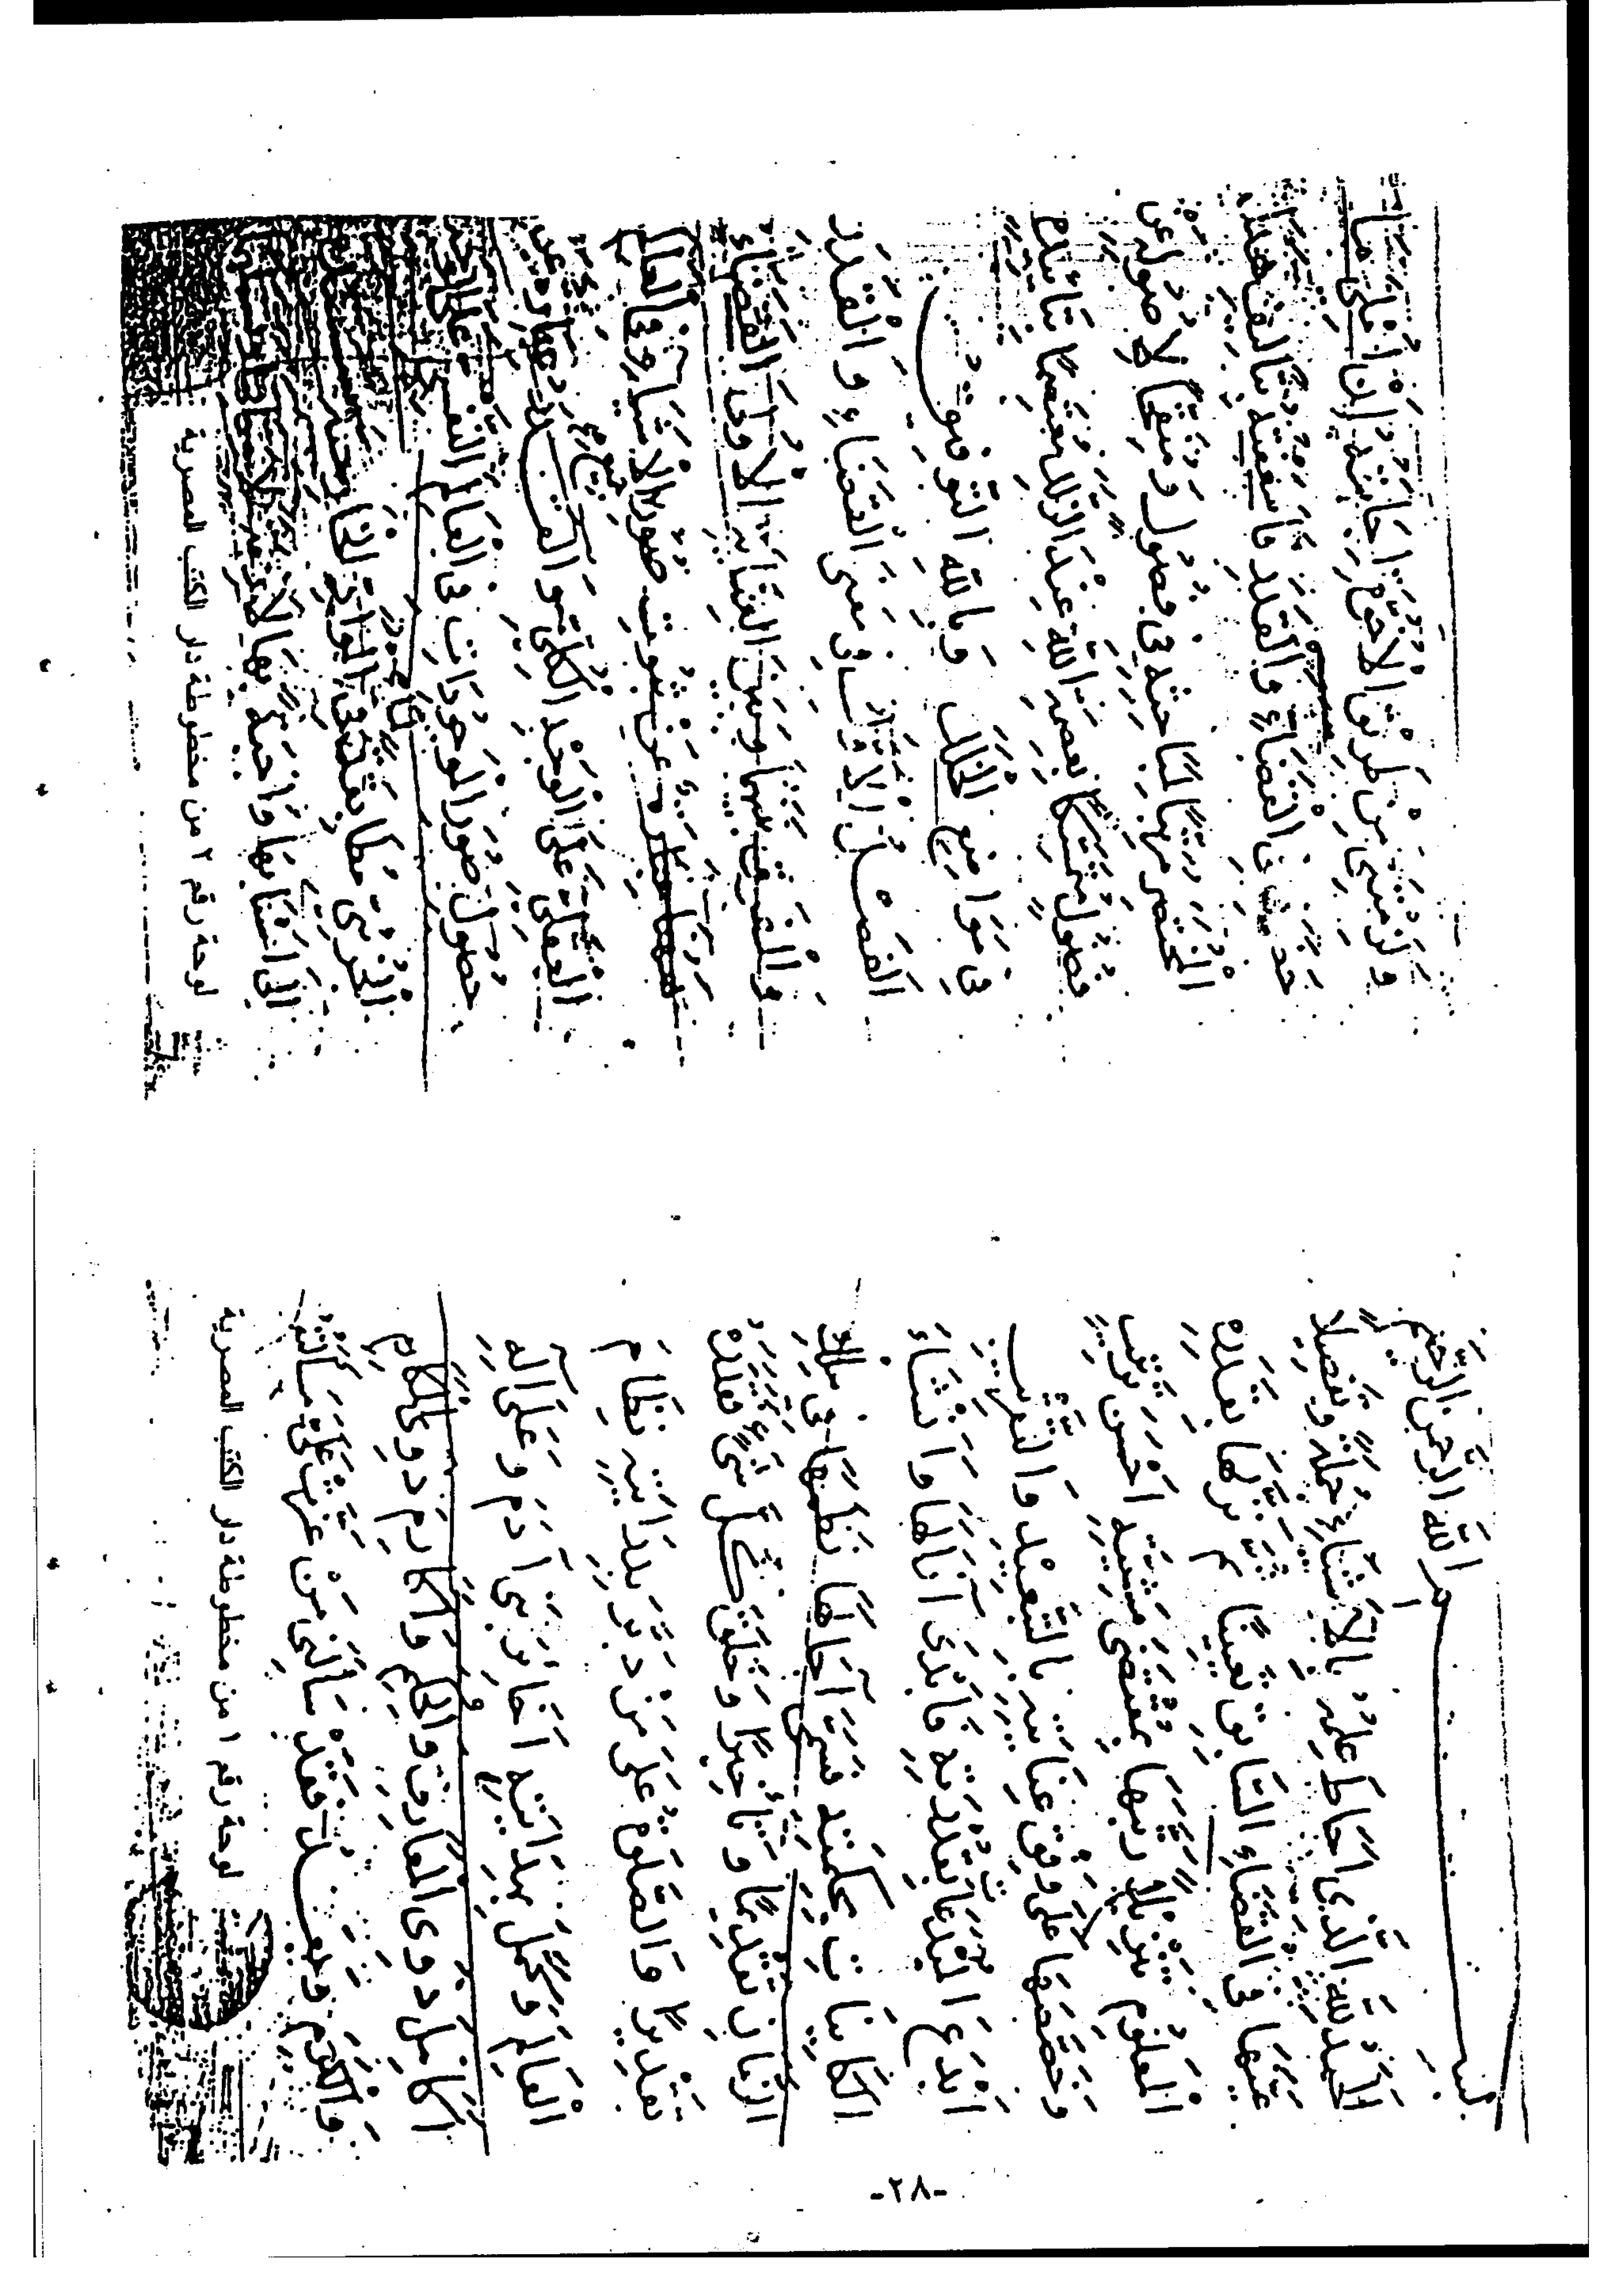 بسم الله الرحمن الرحيم
الحمد لله الذي أحاط علمه بالأشياء جملة وتفصيلا
عينها في القضاء السابق تعيينا ثم رتبها بقدره
المعلوم تنزيلا ربها بمقتضى مشيته أحسن ترتيب
وخصصها على وفق عنايته بالتبعيد والتقريب
أبدع البدعا بقدرته فأبدى آناها وانشاء
الكاينات بحكمته فسمى آجالها نظمها في سلك
الزمان تقديما وتأخيرا وخلق كل شئ فقدره
تقديرا والصلوة على من دبر بدايته نظام
العالم وكمل بهدايته أخاير بني آدم وعلى آله
أكامل ذوي المعارف والحكم وأكارم دوي
والكرم وبعد فقد سألني من عز علي مسألته
لوحة رقم ١ من مخطوطة دار الكتب المصرية
ولزمني من طريق الأخوة إجابته أن أملي
القضاء والقدر فأسعفته
المختصر مرتبا لمباحثه في فصول ومنقحا لأصوله عن
فضول متمسكا بعصمة الله عند الزلل معتصما بتأييده
في مواضع الخلل وبالله التوفيق
الفصل الأول في معنى القضاء والقدر
والفرق بينهما وبين العناية الأولى القضاء
عبارة عن ثبوت صور الأشياء في العالم
العقلي على الوجه الكلي والقدر عبارة عن
حصول صور الموجودات في العالم النفسي على الوجه
الجزئي مطابقة لما في المواد الخارجية
إلى أسبابها واجبة بها لازمة
لوحة رقم ٢ من مخطوطة دار الكتب المصرية
-٢٨-